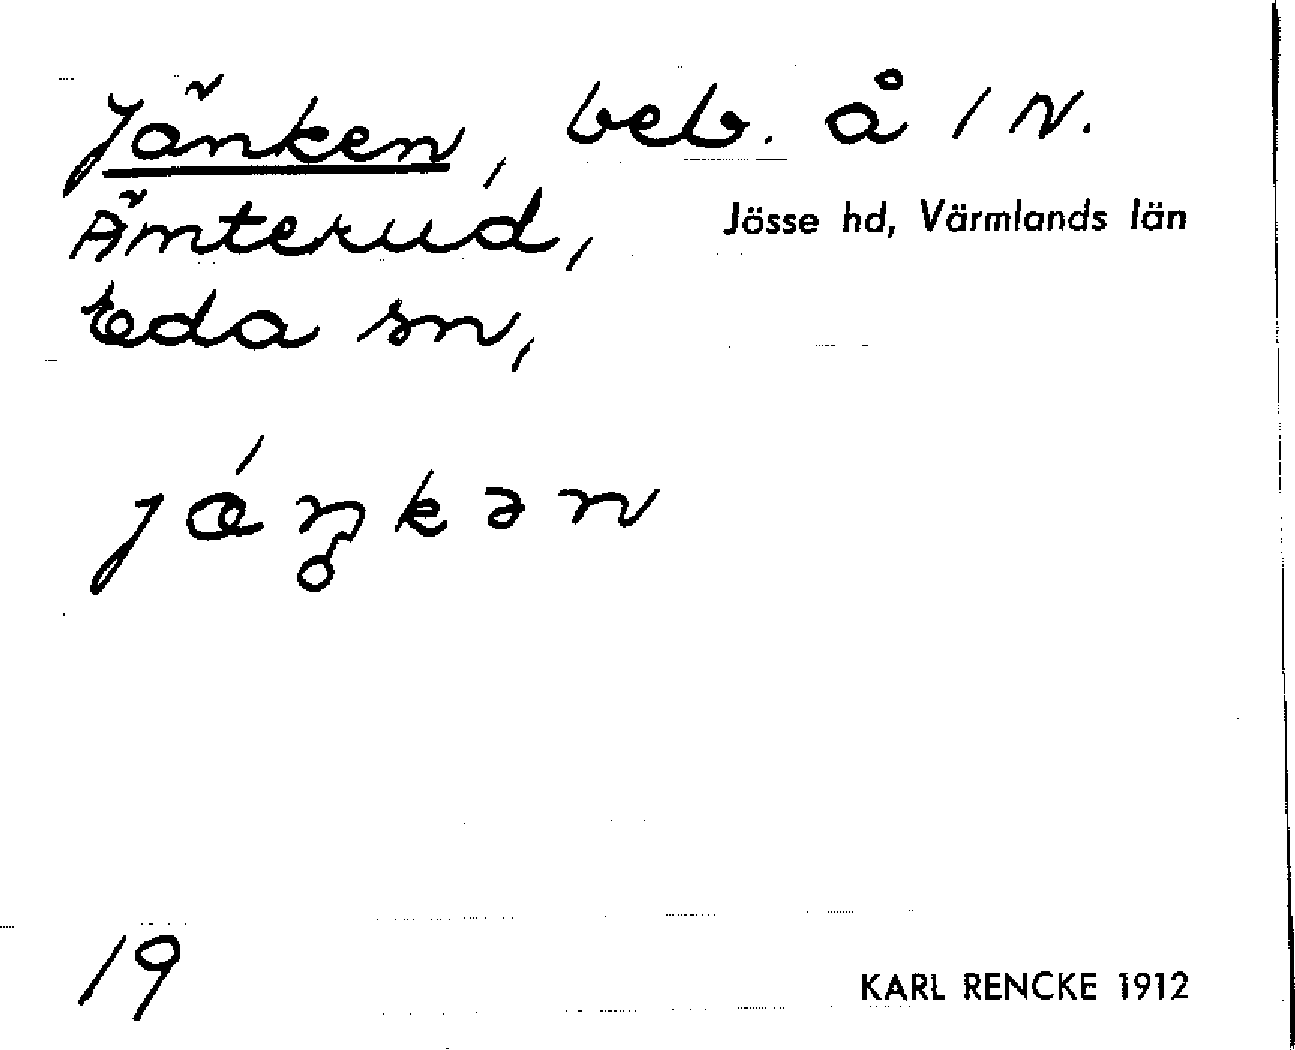 Jänken, beb. å 1 N.
Ämterud, Jösse hd, Värmlands län
Eda sn,
jáŋkən
19
KARL RENCKE 1912